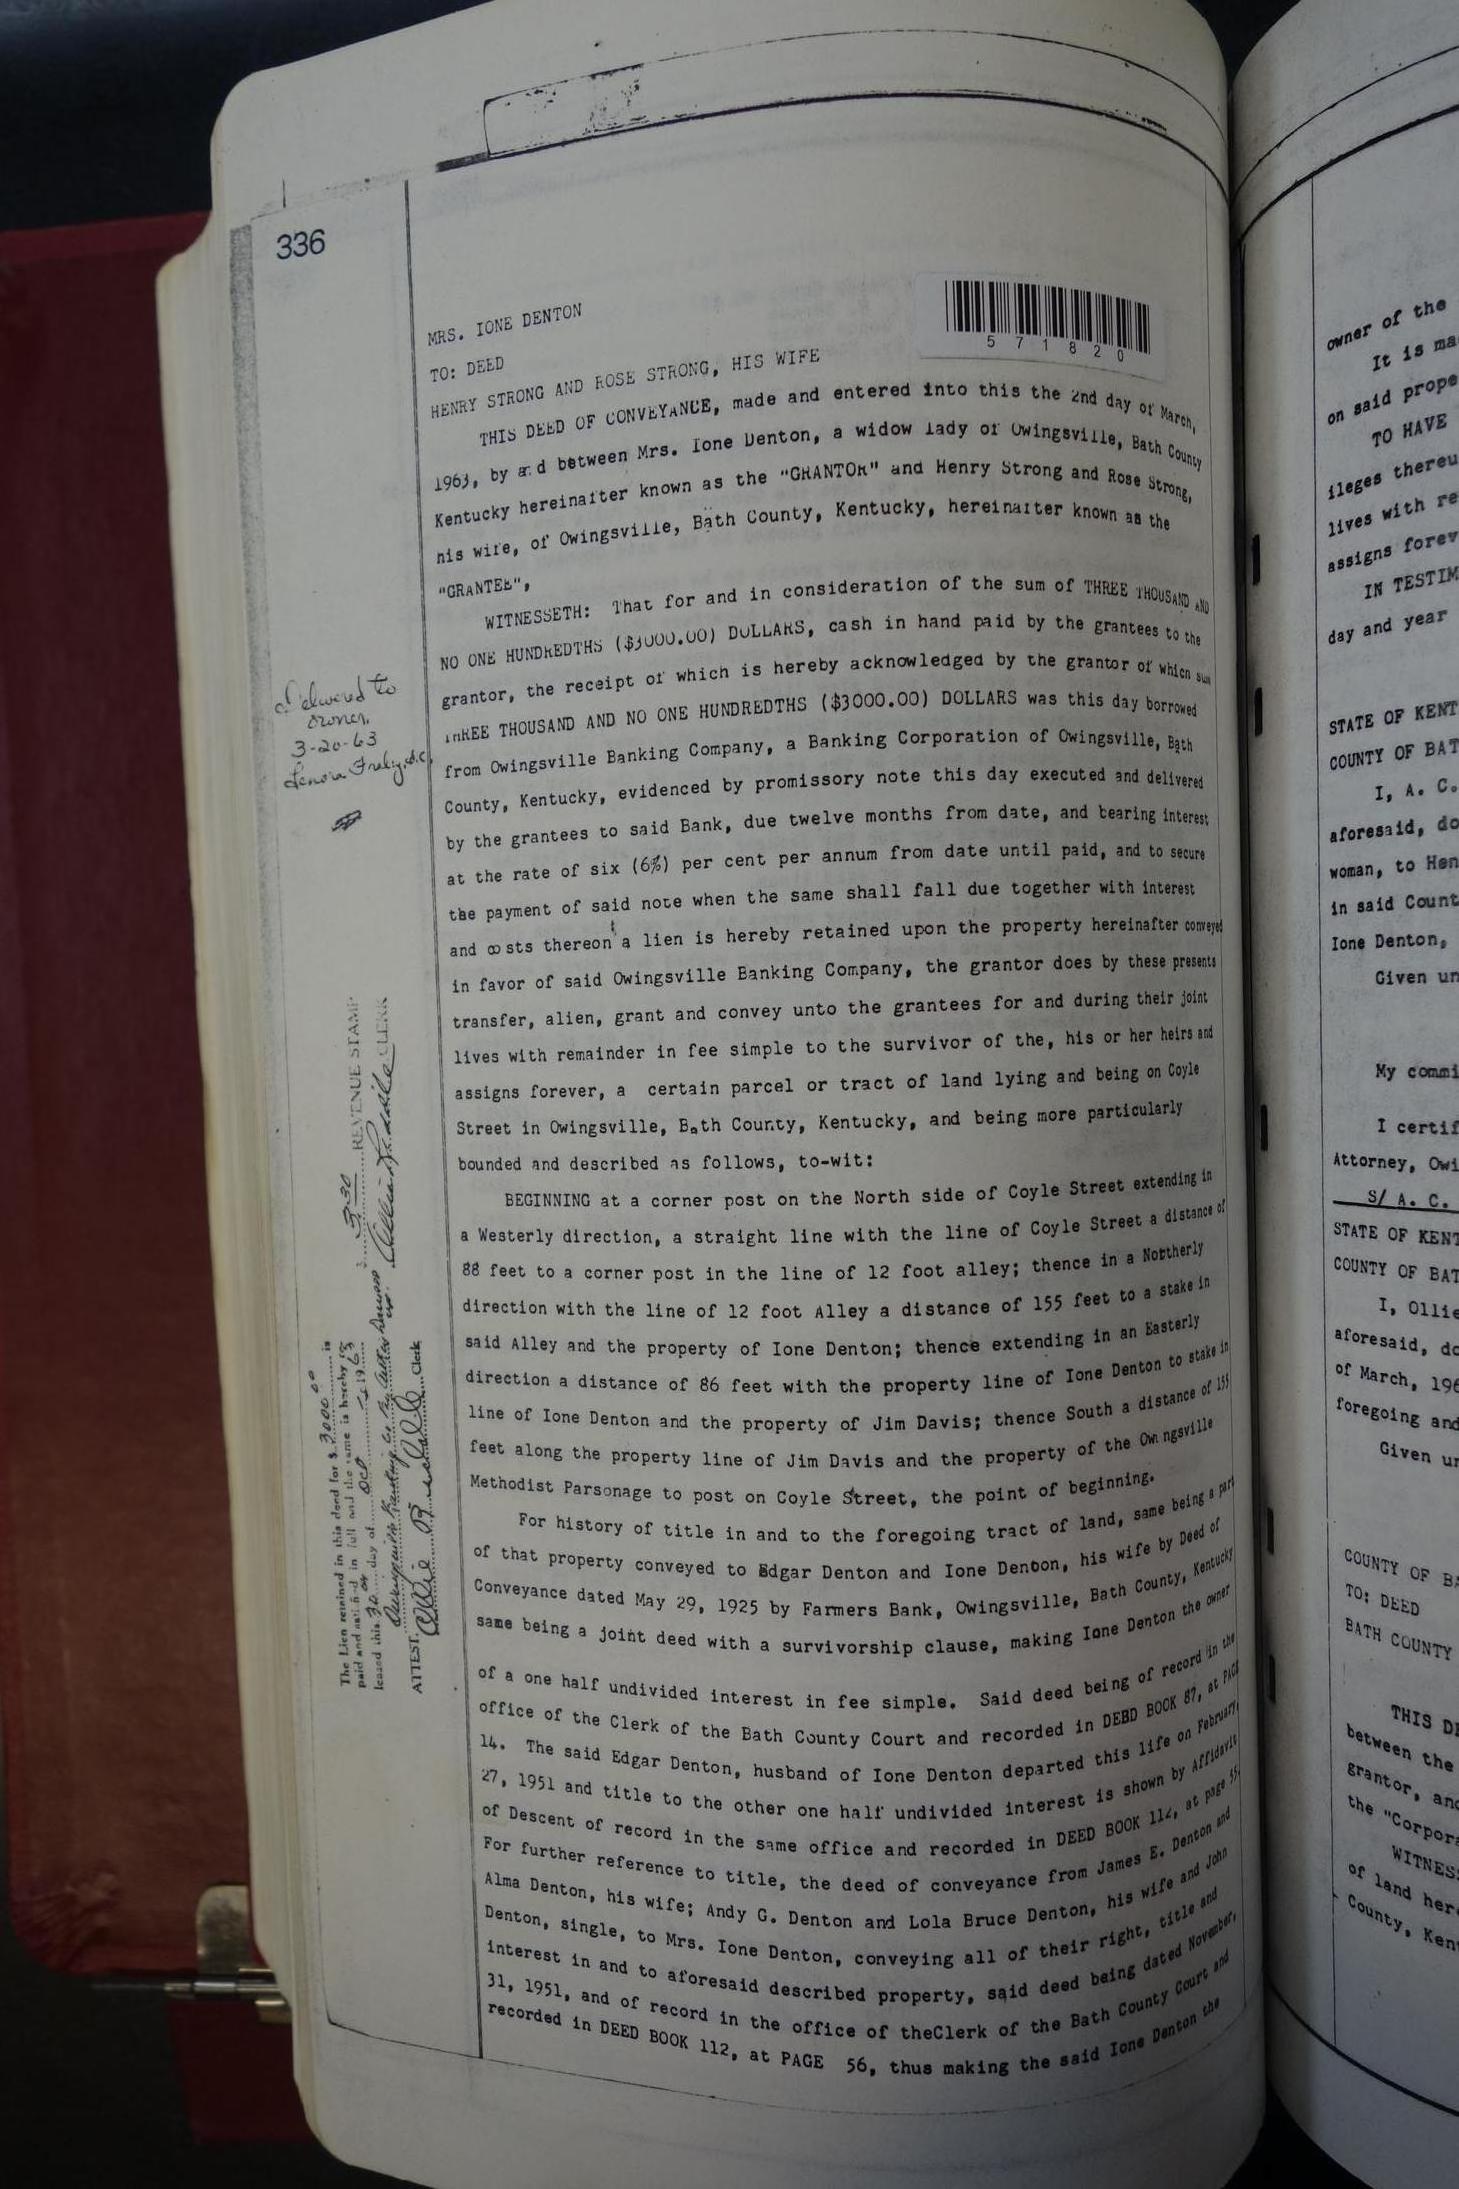 336
571820
MRS. IONE DENTON
TO: DEED
HENRY STRONG AND ROSE STRONG, HIS WIFE
THIS DEED OF CONVEYANCE, made and entered into this the 2nd day of March,
1963, by and between Mrs. Ione Denton, a widow lady of Owingsville, Bath County
Kentucky hereinafter known as the "GRANTOR" and Henry Strong and Rose Strong,
his wife, of Owingsville, Bath County, Kentucky, hereinafter known as the
"GRANTEE",
WITNESSETH: That for and in consideration of the sum of THREE THOUSAND AND
NO ONE HUNDREDTHS ($3000.00) DOLLARS, cash in hand paid by the grantees to the
grantor, the receipt of which is hereby acknowledged by the grantor of which sum
THREE THOUSAND AND NO ONE HUNDREDTHS ($3000.00) DOLLARS was this day borrowed
from Owingsville Banking Company, a Banking Corporation of Owingsville, Bath
County, Kentucky, evidenced by promissory note this day executed and delivered
by the grantees to said Bank, due twelve months from date, and bearing interest
at the rate of six (6%) per cent per annum from date until paid, and to secure
the payment of said note when the same shall fall due together with interest
and costs thereon a lien is hereby retained upon the property hereinafter conveyed
in favor of said Owingsville Banking Company, the grantor does by these presents
transfer, alien, grant and convey unto the grantees for and during their joint
lives with remainder in fee simple to the survivor of the, his or her heirs and
assigns forever, a certain parcel or tract of land lying and being on Coyle
Street in Owingsville, Bath County, Kentucky, and being more particularly
bounded and described as follows, to-wit:
BEGINNING at a corner post on the North side of Coyle Street extending in
a Westerly direction, a straight line with the line of Coyle Street a distance of
88 feet to a corner post in the line of 12 foot alley; thence in a Northerly
direction with the line of 12 foot Alley a distance of 155 feet to a stake in
said Alley and the property of Ione Denton; thence extending in an Easterly
direction a distance of 86 feet with the property line of Ione Denton to stake in
line of Ione Denton and the property of Jim Davis; thence South a distance of 155
feet along the property line of Jim Davis and the property of the Owingsville
Methodist Parsonage to post on Coyle Street, the point of beginning.
For history of title in and to the foregoing tract of land, same being a part
of that property conveyed to Edgar Denton and Ione Denton, his wife by Deed of
Conveyance dated May 29, 1925 by Farmers Bank, Owingsville, Bath County, Kentucky
same being a joint deed with a survivorship clause, making Ione Denton the owner
of a one half undivided interest in fee simple. Said deed being of record in the
office of the Clerk of the Bath County Court and recorded in DEED BOOK 87, at PAGE
14. The said Edgar Denton, husband of Ione Denton departed this life on February
27, 1951 and title to the other one half undivided interest is shown by Affidavit
of Descent of record in the same office and recorded in DEED BOOK 112, at page 55.
For further reference to title, the deed of conveyance from James E. Denton and
Alma Denton, his wife; Andy G. Denton and Lola Bruce Denton, his wife and John
Denton, single, to Mrs. Ione Denton, conveying all of their right, title and
interest in and to aforesaid described property, said deed being dated November,
31, 1951, and of record in the office of theClerk of the Bath County Court and
recorded in DEED BOOK 112, at PAGE 56, thus making the said Ione Denton the
Delivered to
owner,
3-20-63
3.30 REVENUE STAMP
CLERK
The Lien retained in this deed for $ 3000.00 is
paid and satisfied in full and the same is hereby re-
leased this 30 day of Oct 1963
Owingsville Banking Co. By
ATTEST: Clerk
owner of the
It is ma
on said prope
TO HAVE
ileges thereu
lives with re
assigns forev
IN TESTIM
day and year
STATE OF KENT
COUNTY OF BAT
I, A. C.
aforesaid, do
woman, to Hen
in said Count
Ione Denton,
Given un
My commi
I certif
Attorney, Owi
S/ A. C.
STATE OF KENT
COUNTY OF BAT
I, Ollie
aforesaid, do
of March, 196
foregoing and
Given un
COUNTY OF BA
TO: DEED
BATH COUNTY
THIS DE
between the
grantor, and
the "Corpora
WITNESS
of land here
County, Kent